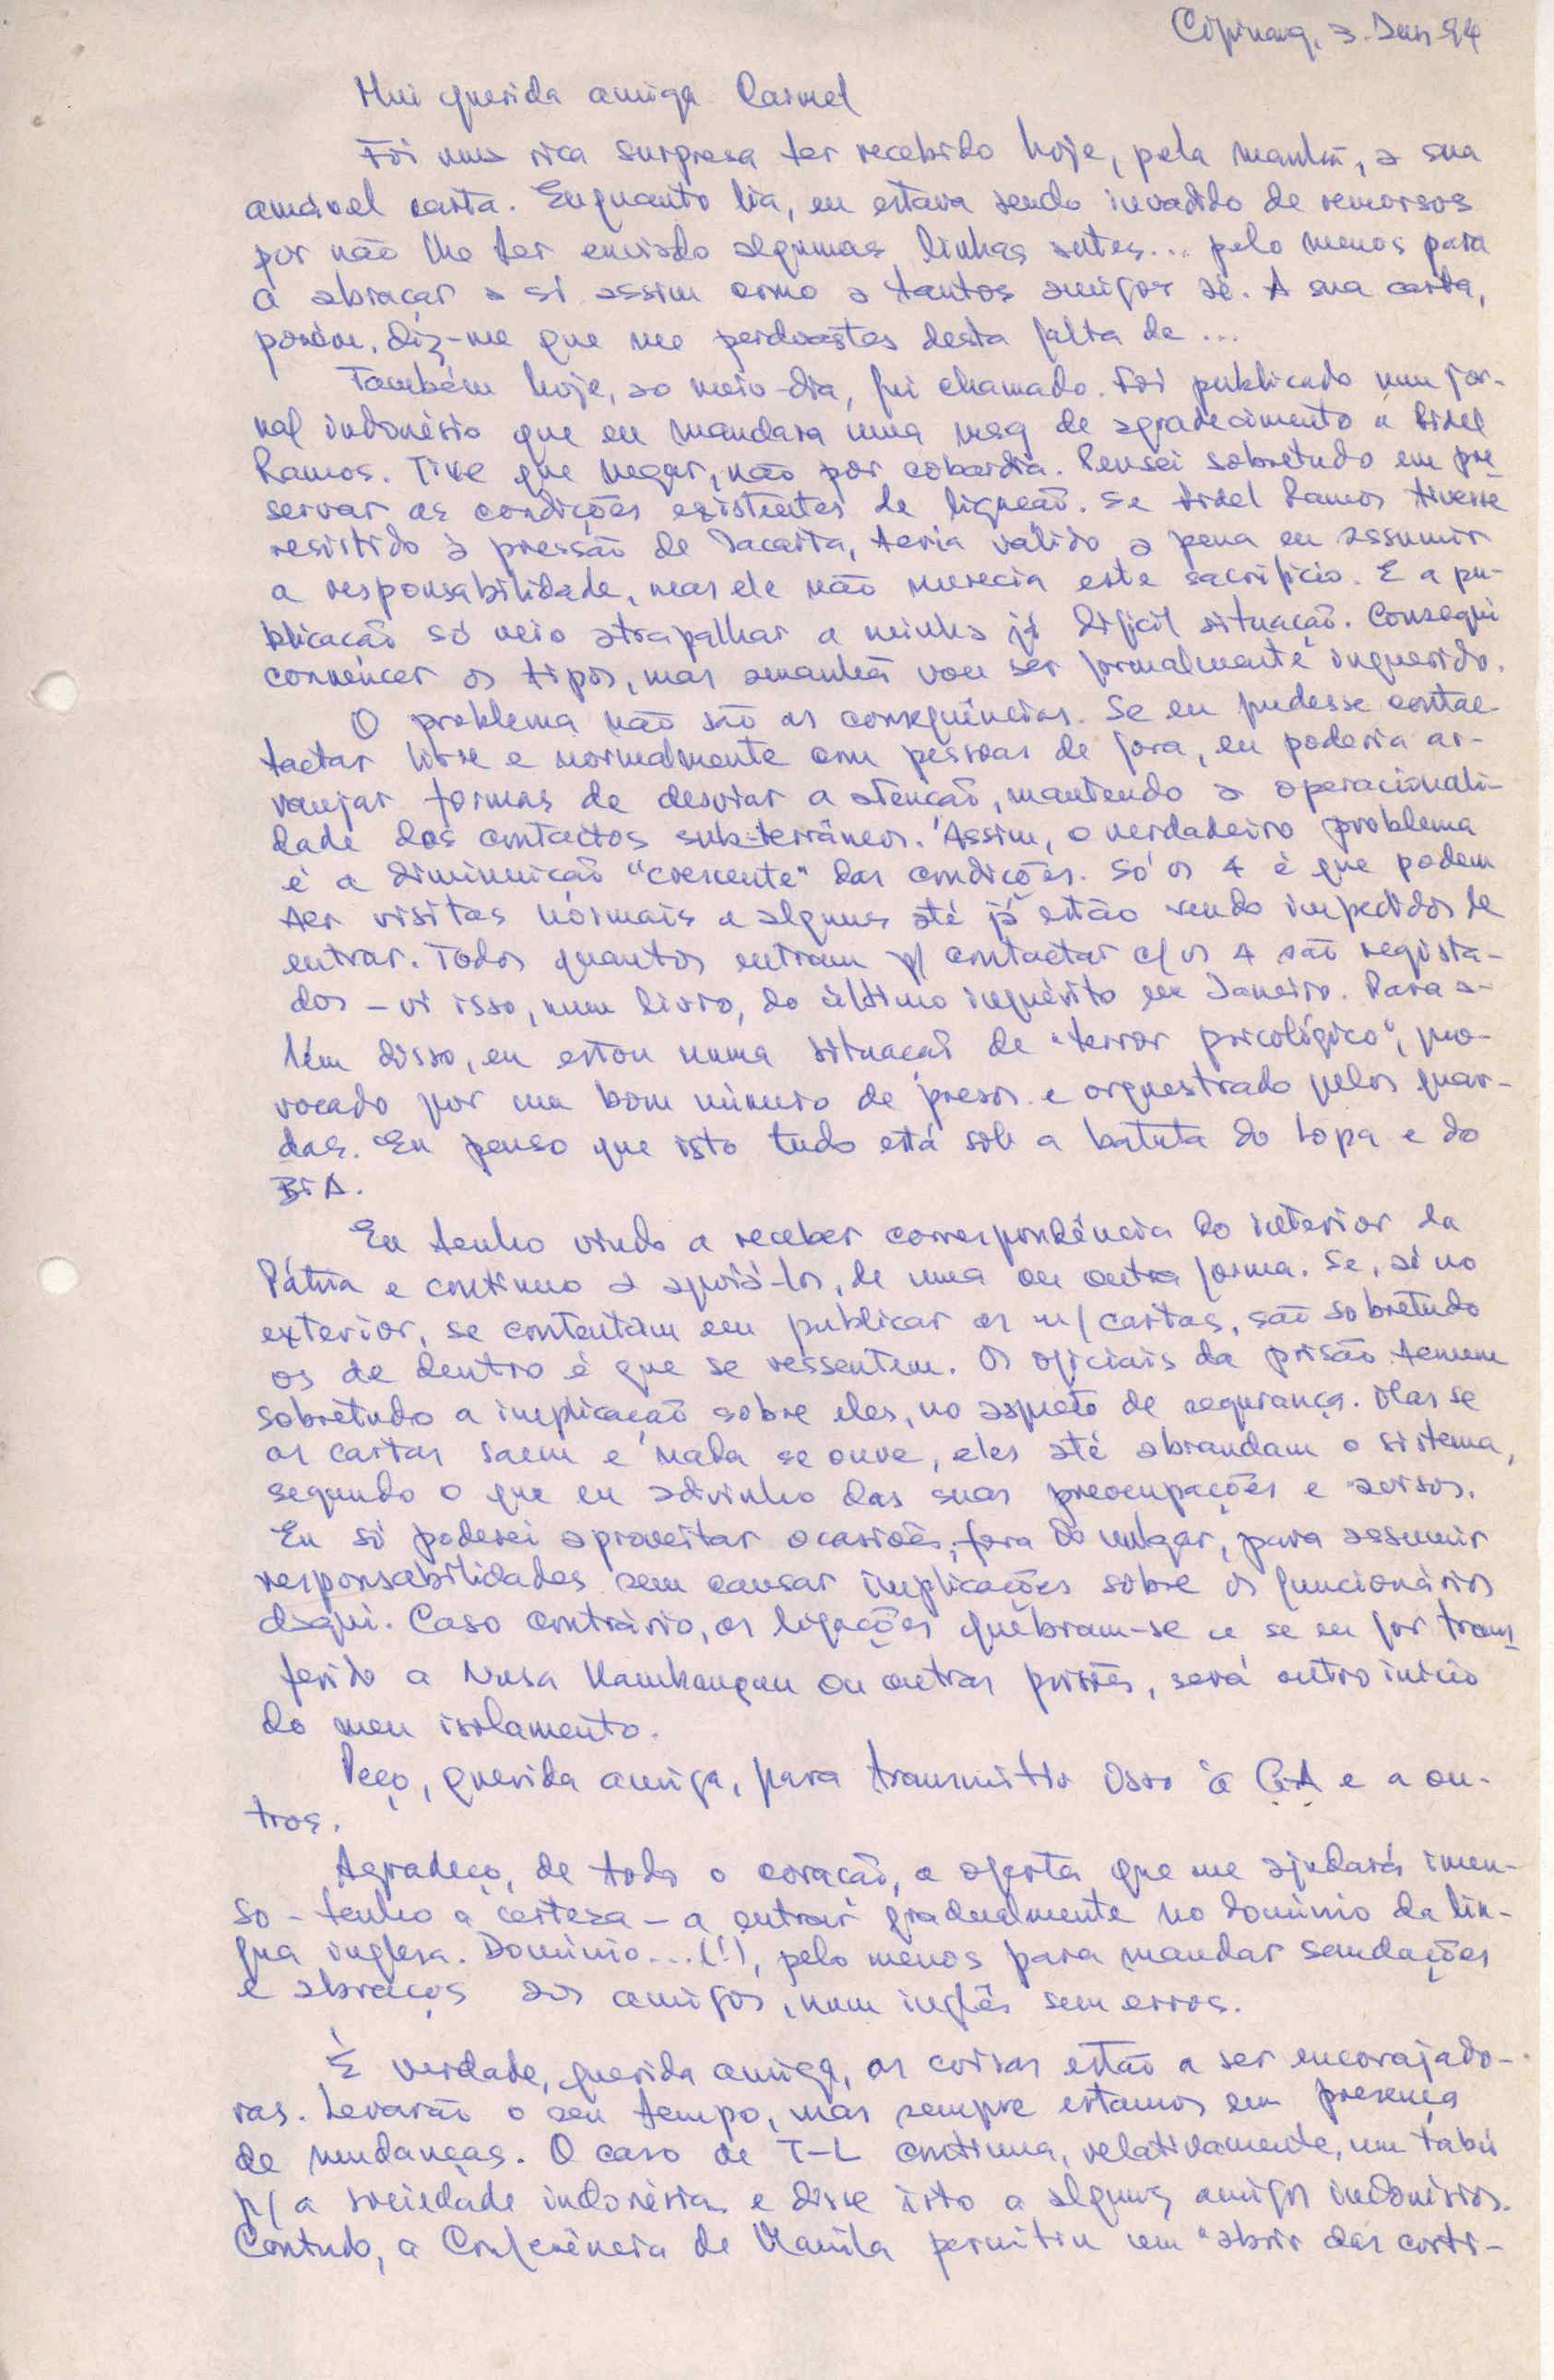 Cipinang, 3. Jun 94
Mui querida amiga Carmel
Foi uma rica surpresa ter recebido hoje, pela manhã, a sua
amável carta. Enquanto lia, eu estava sendo invadido de remorsos
por não lhe ter enviado algumas linhas antes... pelo menos para
a abraçar a si assim como a tantos amigos aí. A sua carta,
porém, diz-me que me perdoastes desta falta de ...
Também hoje, ao meio-dia, fui chamado. Foi publicado num jor-
nal indonésio que eu mandara uma msg de agradecimento a Fidel
Ramos. Tive que negar, não por cobardia. Pensei sobretudo em pre
servar as condições existentes de ligação. Se Fidel Ramos tivesse
resistido à pressão de Jacarta, teria válido a pena eu assumir
a responsabilidade, mas ele não merecia este sacrifício. E a pu-
blicação só veio atrapalhar a minha já difícil situação. Consegui
convencer os tipos, mas amanhã vou ser formalmente inquerido.
O problema não são as consequências. Se eu pudesse contac-
tactar livre e normalmente com pessoas de fora, eu poderia ar-
ranjar formas de desviar a atenção, mantendo a operacionali-
dade dos contactos sub-terrâneos. Assim, o verdadeiro problema
é a diminuição "crescente" das condições. Só os 4 é que podem
ter visitas normais e alguns até já estão sendo impedidos de
entrar. Todos quantos entram p/ contactar c/ os 4 são regista-
dos - vi isso, num livro, do último inquérito em Janeiro. Para a-
lém disso, eu estou numa situação de "terror psicológico", pro-
vocado por um bom número de presos e orquestrado pelos guar-
das. Eu penso que isto tudo está sob a batuta do Lopa e do
BIA.
Eu tenho vindo a receber correspondência do interior da
Pátria e continuo a apoiá-los, de uma ou outra forma. Se, aí no
exterior, se contentam em publicar as m/ cartas, são sobretudo
os de dentro é que se ressentem. Os oficiais da prisão temem
sobretudo a implicação sobre eles, no aspecto de segurança. Mas se
as cartas saem e nada se ouve, eles até abrandam o sistema,
segundo o que eu adivinho das suas preocupações e avisos.
Eu só poderei aproveitar ocasiões, fora do vulgar, para assumir
responsabilidades sem causar implicações sobre os funcionários
daqui. Caso contrário, as ligações quebram-se e se eu for trans
ferido a Nusa Kambangan ou outras prisões, será outro início
do meu isolamento.
Peço, querida amiga, para transmitir isso à e a ou-
tros.
Agradeço, de todo o coração, a oferta que me ajudará imen-
so - tenho a certeza - a entrar gradualmente no domínio da lín-
gua inglesa. Domínio...(!), pelo menos para mandar saudações
e abraços aos amigos, num inglês sem erros.
É verdade, querida amiga, as coisas estão a ser encorajado-
ras. Levarão o seu tempo, mas sempre estamos em presença
de mudanças. O caso de T-L continua, relativamente, um tabú
p/ a sociedade indonésia e disse isto a alguns amigos indonésios.
Contudo, a Conferência de Manila permitiu um "abrir das corti-